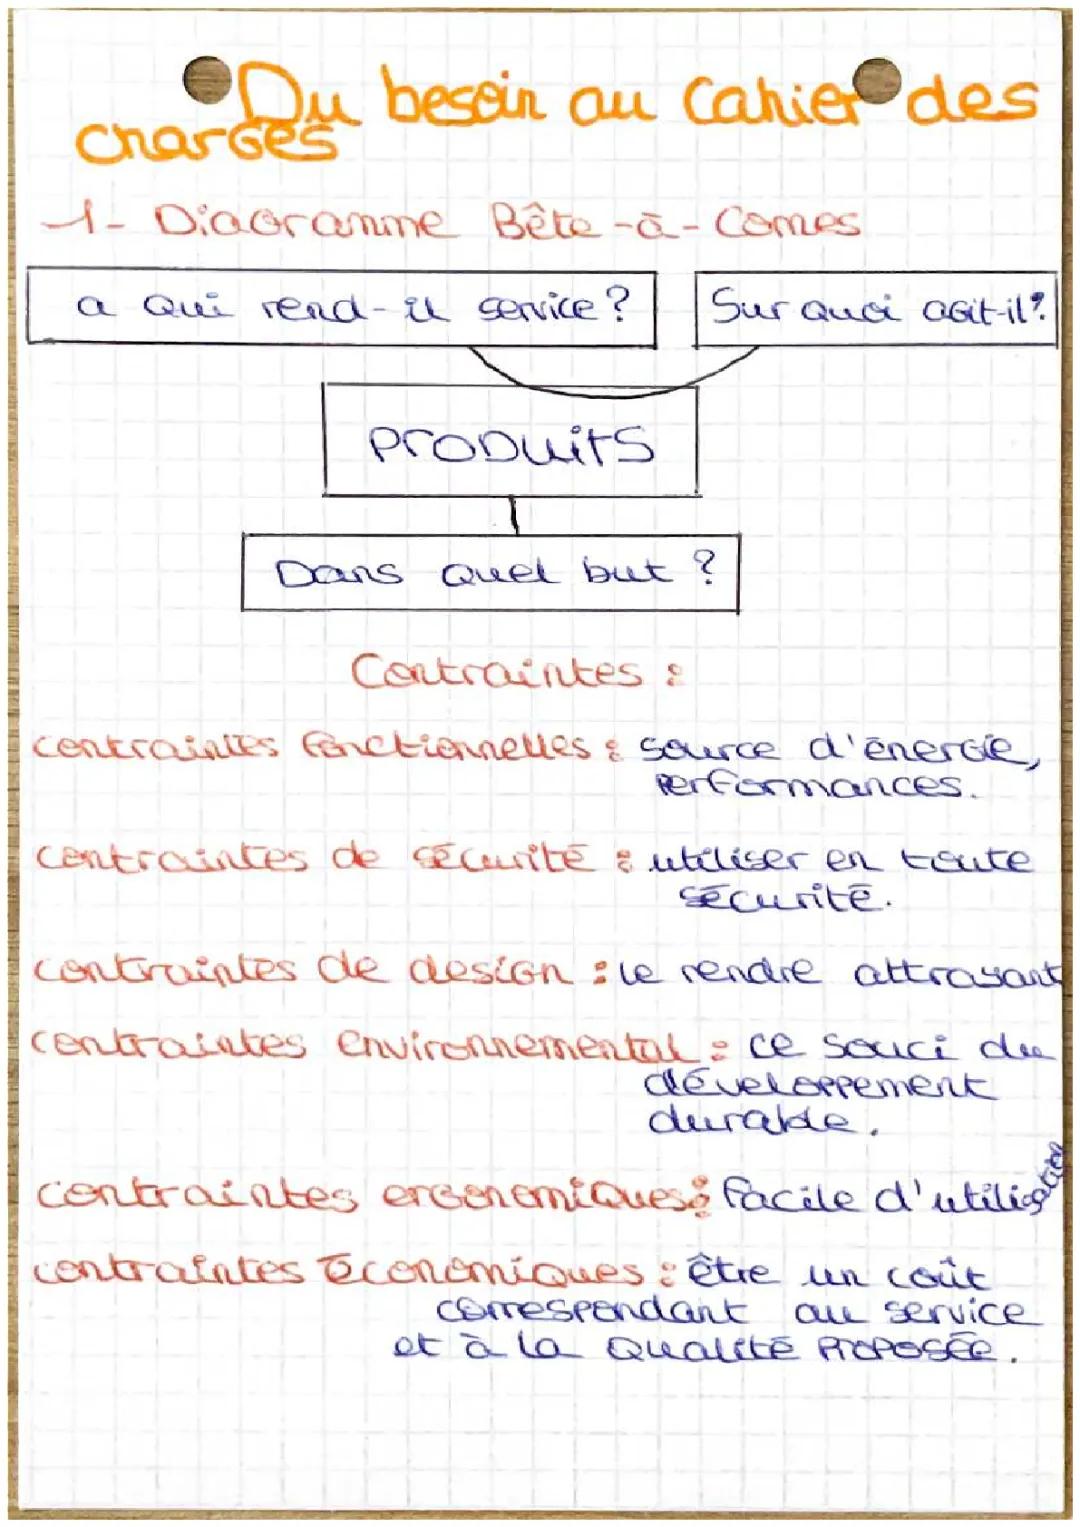 Du besoin au Cahier des
charges
1- Diagramme Bête-à-Cornes
a qui rend-il service ?
Sur quoi agit-il ?
PRODuitS
Dans quel but ?
Contraintes :
contraintes fonctionnelles : source d'énergie,
performances.
contraintes de sécurité : utiliser en toute
sécurité.
contraintes de design : le rendre attrayant
contraintes environnemental : ce souci du
développement
durable.
contraintes ergonomiques : facile d'utilisation
contraintes économiques : être un coût
correspondant au service
et à la Qualité proposée.